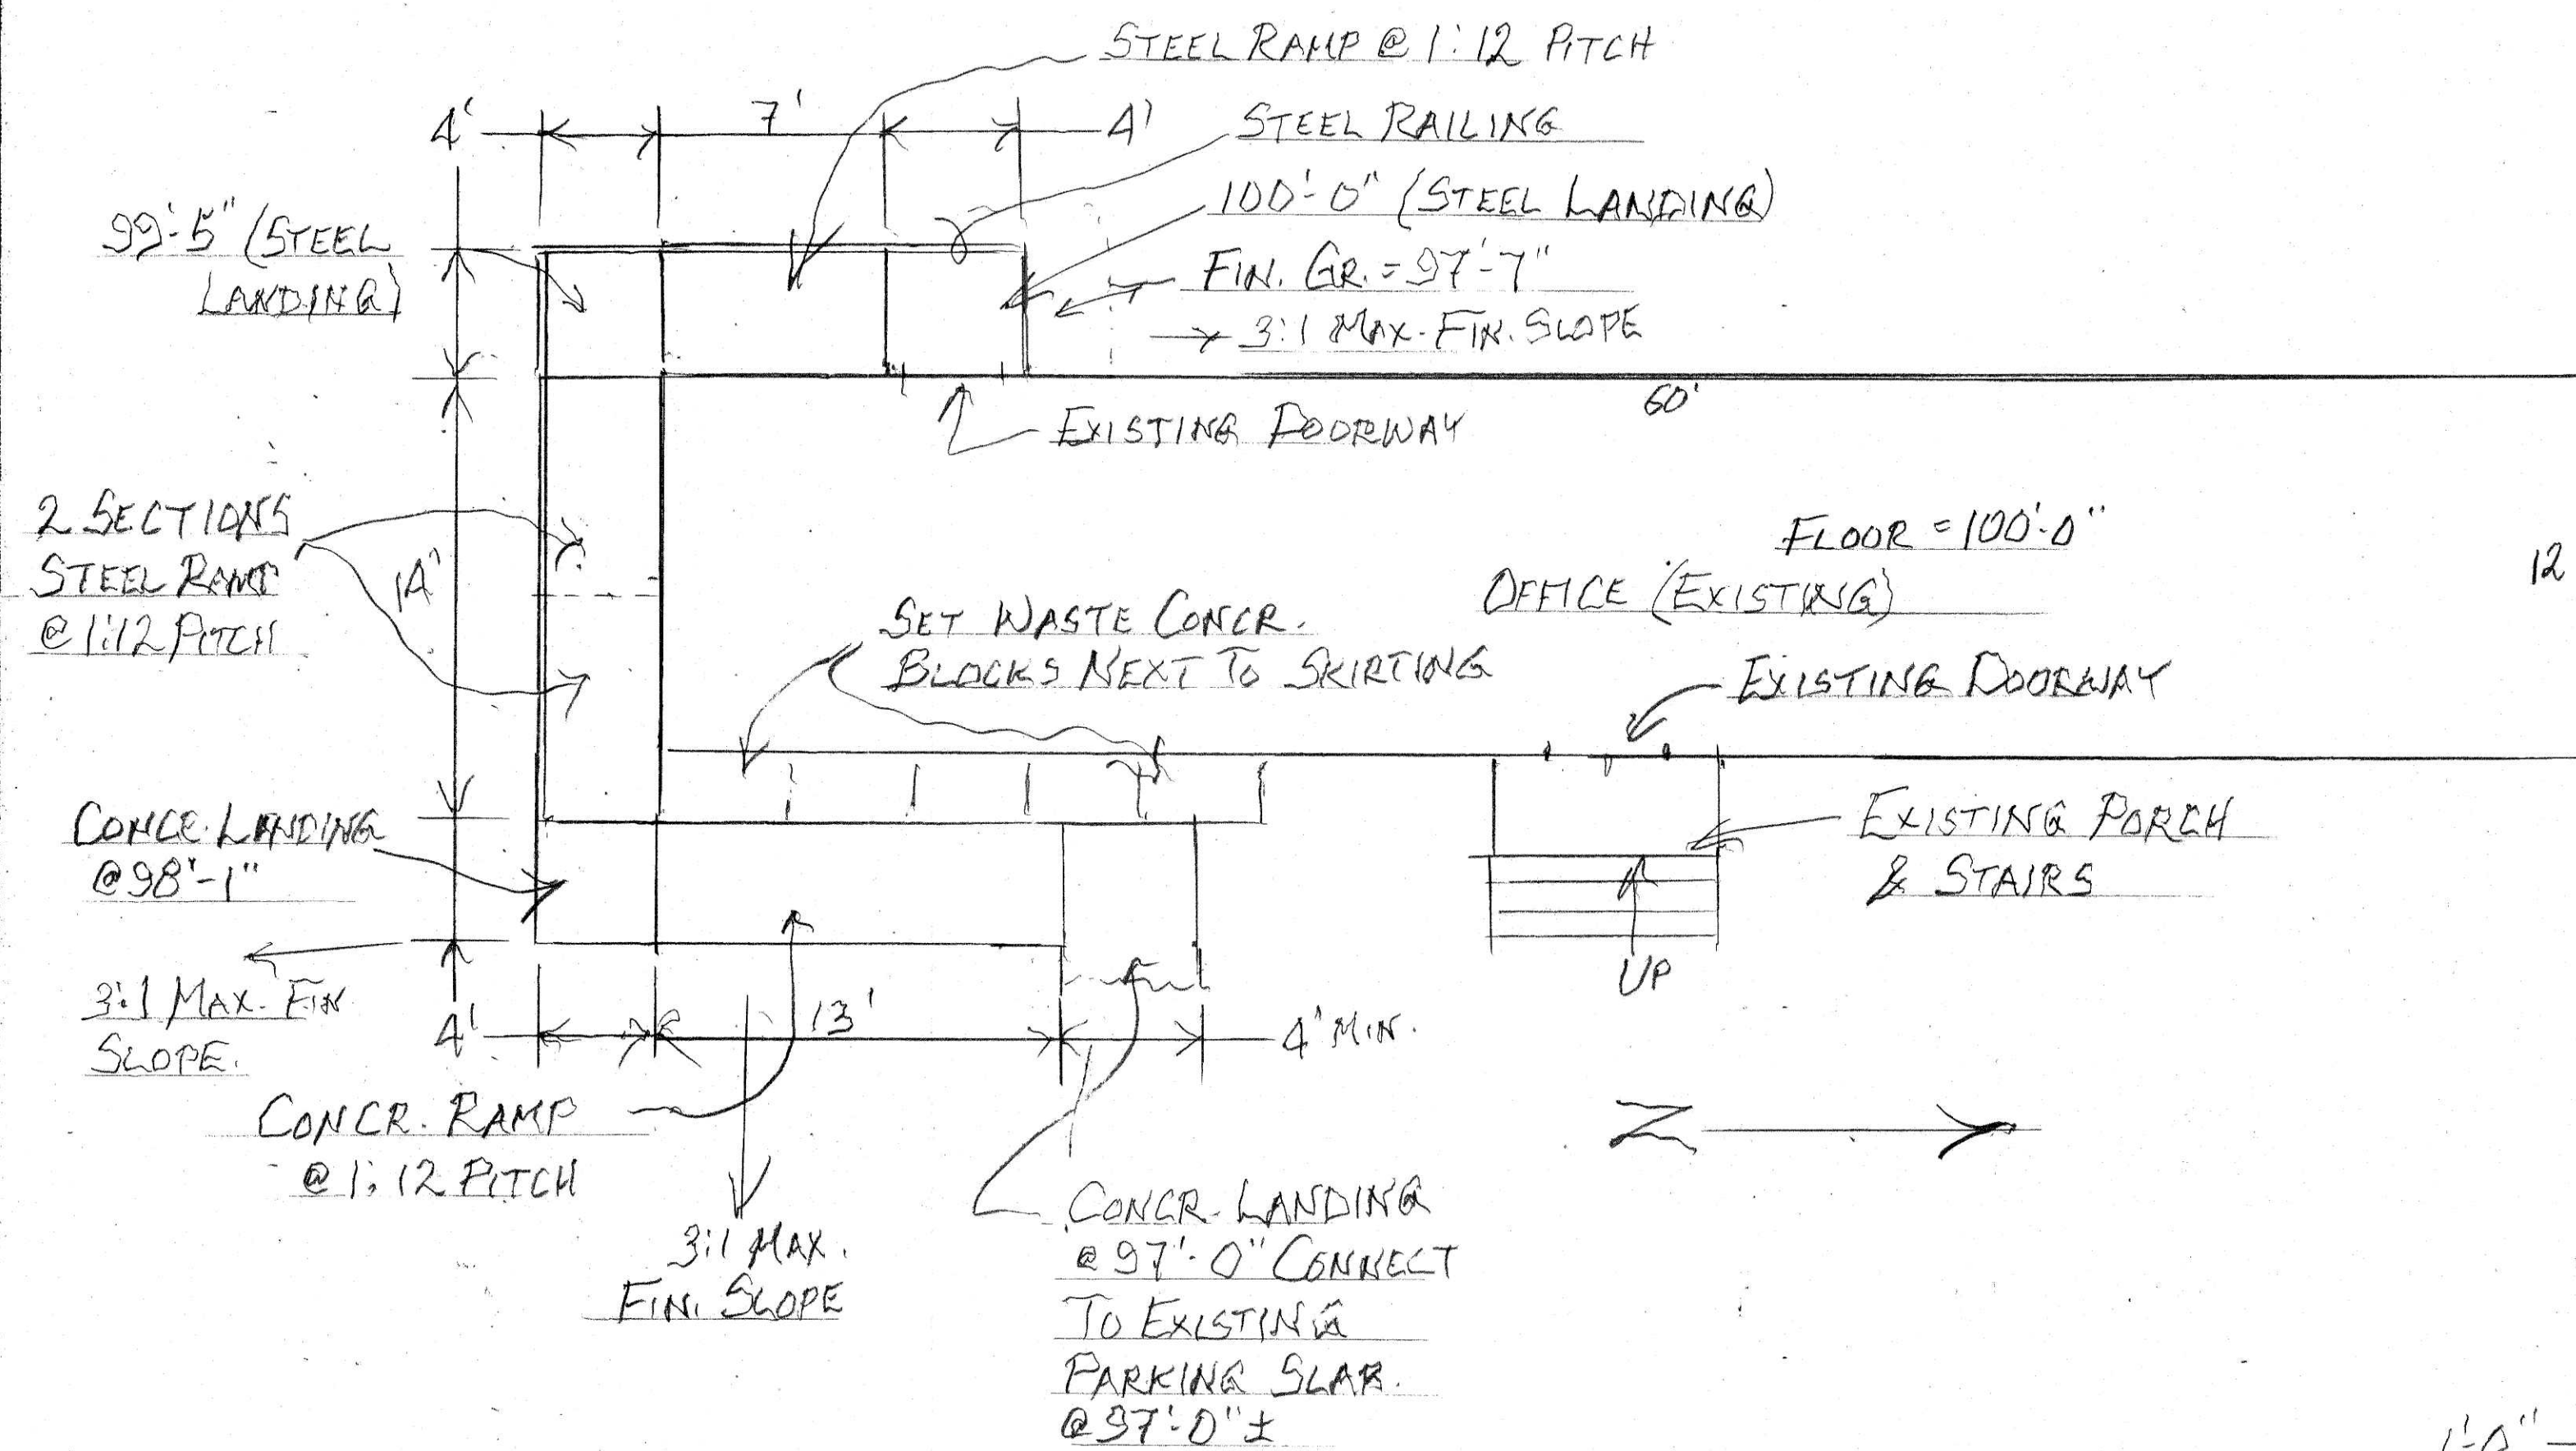 STEEL RAMP @ 1:12 PITCH
4'
7'
4'
STEEL RAILING
100'-0" (STEEL LANDING)
99'-5" (STEEL
LANDING)
FIN. GR. = 97'-7"
3:1 MAX. FIN. SLOPE
60'
EXISTING DOORWAY
2 SECTIONS
STEEL RAMP
@ 1:12 PITCH
14'
FLOOR = 100'-0"
OFFICE (EXISTING)
12
SET WASTE CONCR.
BLOCKS NEXT TO SKIRTING
EXISTING DOORWAY
CONCR. LANDING
@ 98'-1"
EXISTING PORCH
& STAIRS
UP
3:1 MAX. FIN
SLOPE.
4'
13'
4' MIN.
CONCR. RAMP
@ 1:12 PITCH
N
3:1 MAX.
FIN. SLOPE
CONCR. LANDING
@ 97'-0" CONNECT
TO EXISTING
PARKING SLAB.
@ 97'-0" ±
1'-0"